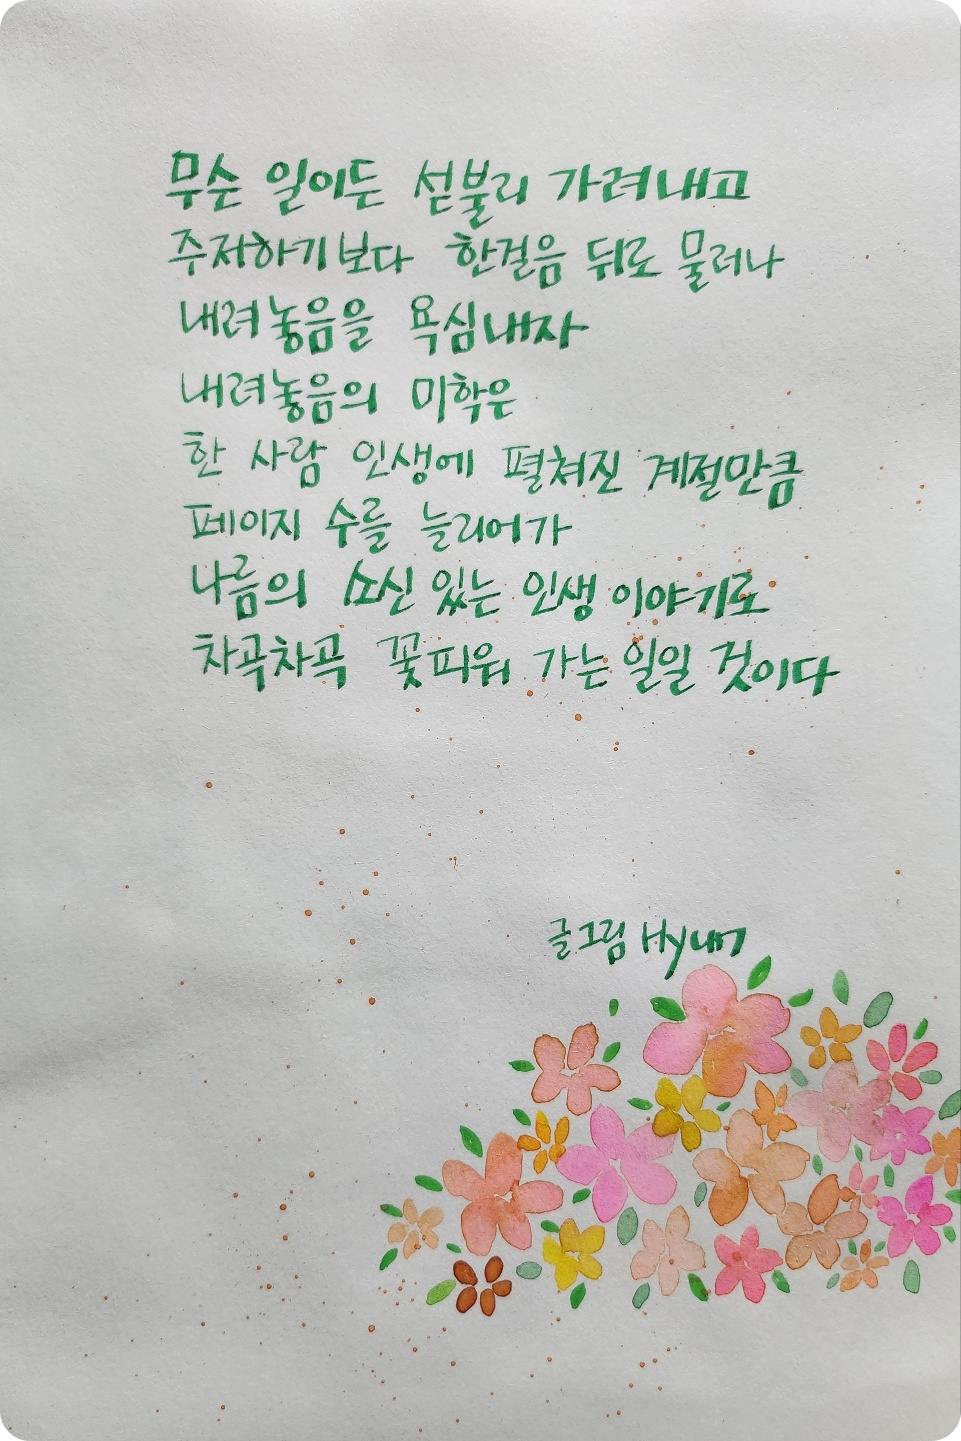 무슨 일이든 섣불리 가려내고
주저하기보다 한걸음 뒤로 물러나
내려놓음을 욕심내자
내려놓음의 미학은
한 사람 인생에 펼쳐진 계절만큼
페이지 수를 늘리어가
나름의 소신 있는 인생 이야기로
차곡차곡 꽃피워 가는 일일 것이다
글그림 Hyun